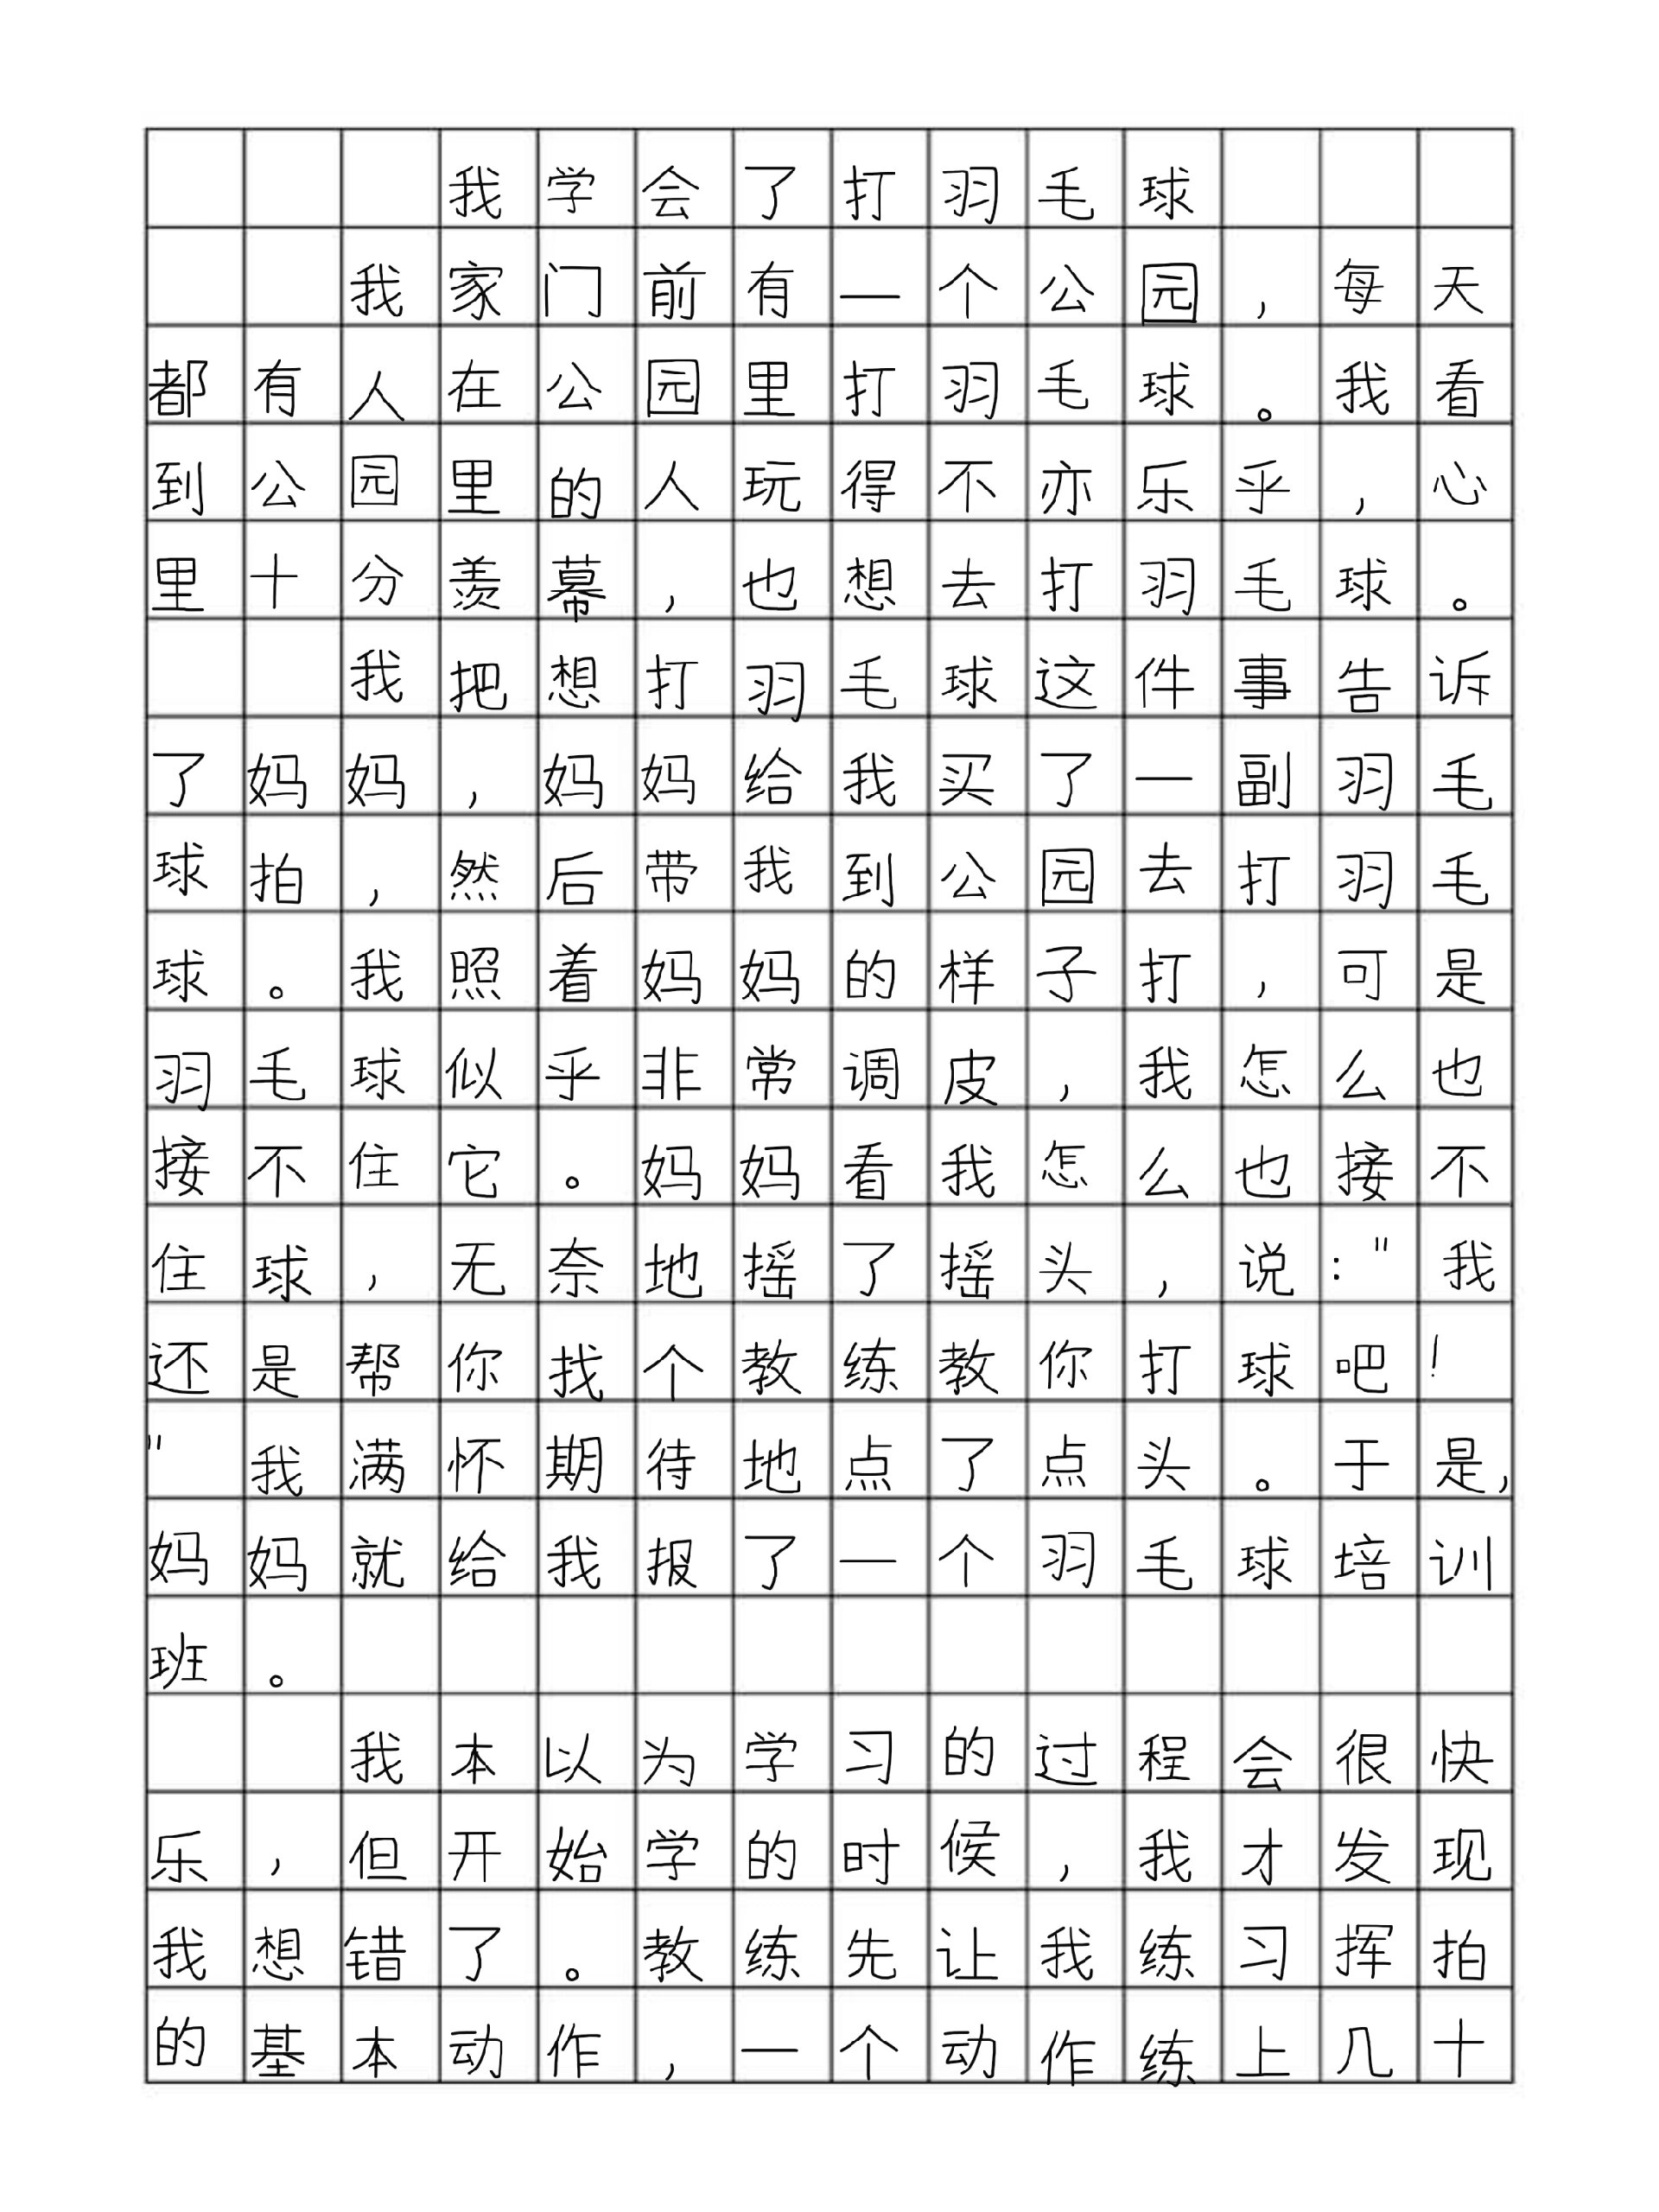 我学会了打羽毛球
我家门前有一个公园，每天
都有人在公园里打羽毛球。我看
到公园里的人玩得不亦乐乎，心
里十分羡幕，也想去打羽毛球。
我把想打羽毛球这件事告诉
了妈妈，妈妈给我买了一副羽毛
球拍，然后带我到公园去打羽毛
球。我照着妈妈的样子打，可是
羽毛球似乎非常调皮，我怎么也
接不住它。妈妈看我怎么也接不
住球，无奈地摇了摇头，说："我
还是帮你找个教练教你打球吧！
"我满怀期待地点了点头。于是，
妈妈就给我报了一个羽毛球培训
班。
我本以为学习的过程会很快
乐，但开始学的时候，我才发现
我想错了。教练先让我练习挥拍
的基本动作，一个动作练上几十